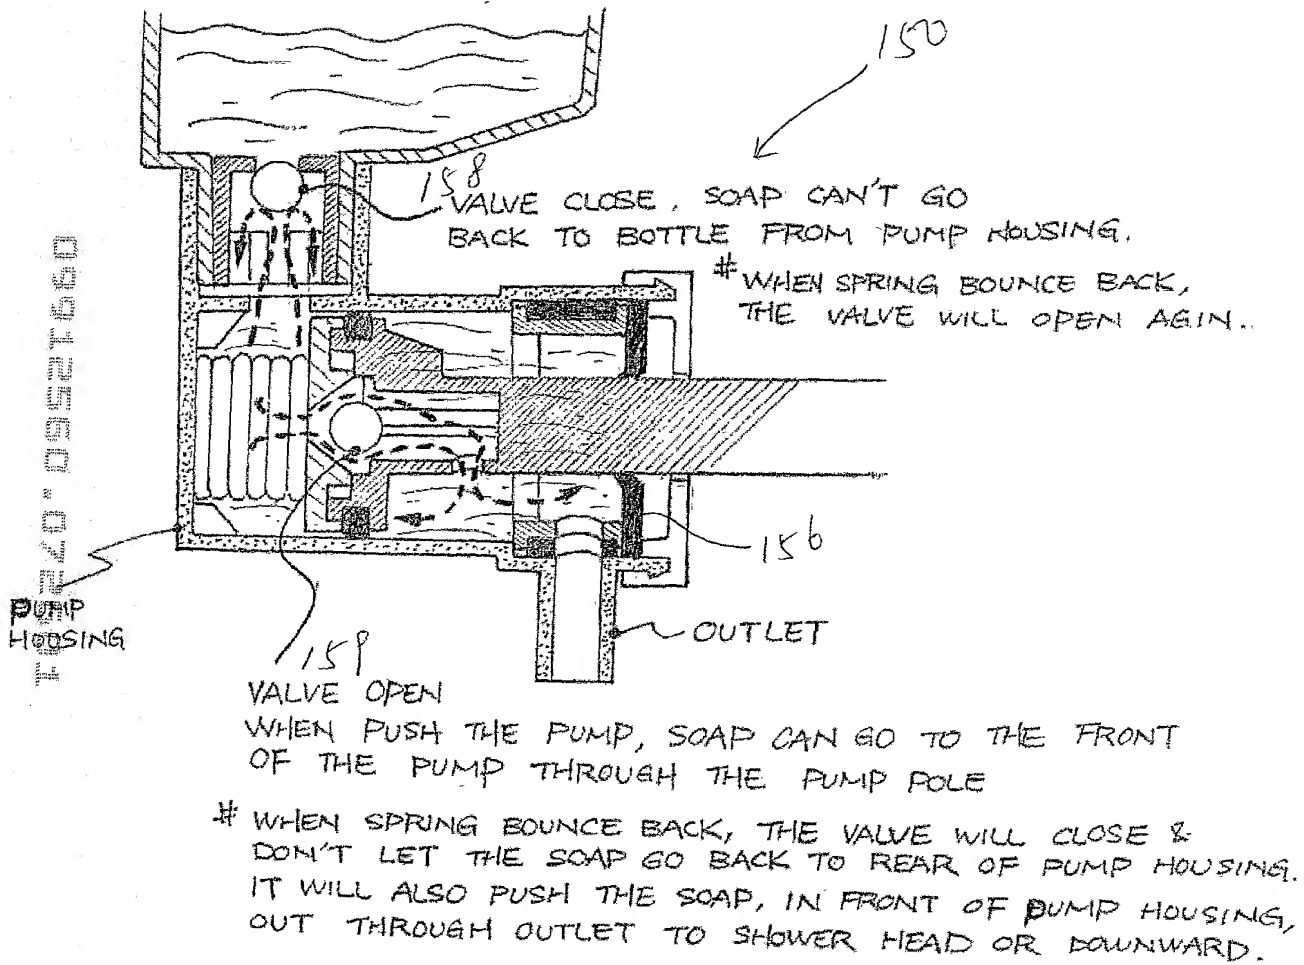 150
158
VALVE CLOSE, SOAP CAN'T GO
BACK TO BOTTLE FROM PUMP HOUSING.
# WHEN SPRING BOUNCE BACK,
THE VALVE WILL OPEN AGIN..
156
PUMP
HOUSING
OUTLET
159
VALVE OPEN
WHEN PUSH THE PUMP, SOAP CAN GO TO THE FRONT
OF THE PUMP THROUGH THE PUMP POLE
# WHEN SPRING BOUNCE BACK, THE VALVE WILL CLOSE &
DON'T LET THE SOAP GO BACK TO REAR OF PUMP HOUSING.
IT WILL ALSO PUSH THE SOAP, IN FRONT OF PUMP HOUSING,
OUT THROUGH OUTLET TO SHOWER HEAD OR DOWNWARD.